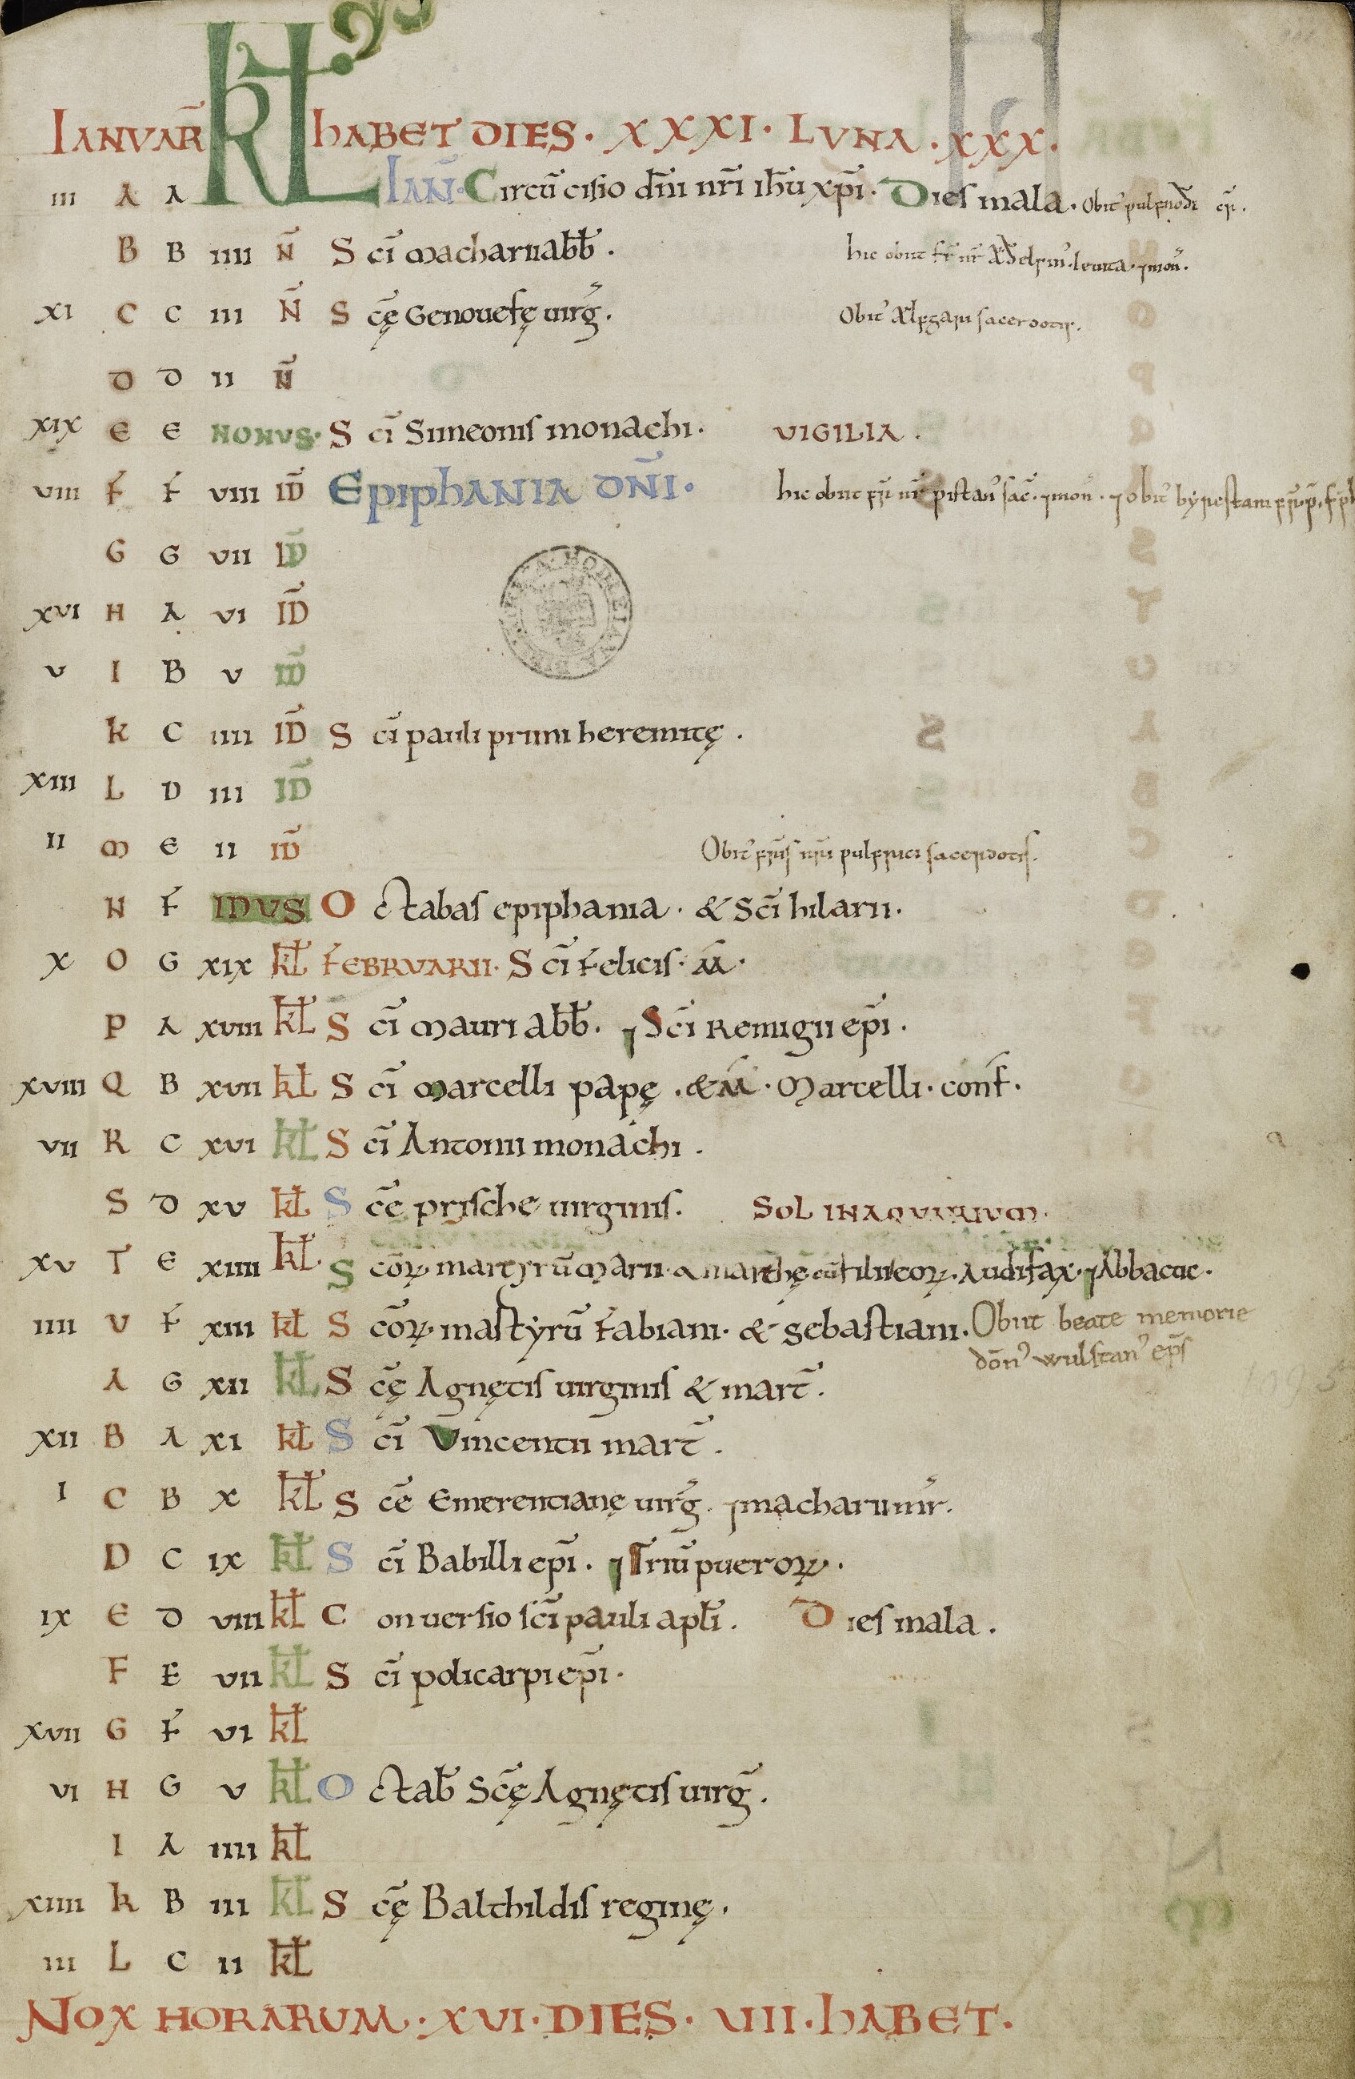 IANUAR̄ KL hABET DIES · XXXI · LUNA · XXX ·
III A A IAN̄ · Circū cisio dn̄i nr̄i ihū xp̄i · Dies mala · Obit'
B B IIII N̄ S cī macharii abb̄ · hic obiit leuita · 7 mon̄ ·
XI C C III N̄ S cę̄ Genouefę uirḡ · Obit' Ælfgari sacerdotis ·
D D II N̄
XIX E E NONUS · S cī Simeonis monachi · VIGILIA ·
VIII F F VIII ID̄ Epiphania DN̄I · hic obiit pistan' sac̄ · 7 mon̄ · 7 obit'
G G VII ID̄
XVI H A VI ID̄
V I B V ID̄
K C IIII ID̄ S cī pauli primi heremitę ·
XIII L D III ID̄
II M E II ID̄ Obit' pulfrici sacerdotis ·
N F IDUS O ctabas epiphania · & Scī hilarii ·
X O G XIX KL FEBRUARII · S cī Felicis · M̄ ·
P A XVIII KL S cī Mauri abb̄ · 7 Scī Remigii ep̄i ·
XVIII Q B XVII KL S cī Marcelli papę · & M̄ · Marcelli · conf̄ ·
VII R C XVI KL S cī Antonii monachi ·
S D XV KL S cē prische uirginis · SOL IN AQUARIUM ·
XV T E XIIII KL · S cōꝝ martyrū Marii · & marthę cū filiis eoꝝ · Audifax · 7 Abbacuc ·
IIII V F XIII KL S cōꝝ mastyrū Fabiani · & Sebastiani · Obiit beate memorie
dōn' wulstan' ep̄s
A G XII KL S cę̄ Agnętis uirginis & mart̄ ·
XII B A XI KL S cī Vincentii mart̄ ·
I C B X KL S cē Emerentianę uirḡ · 7 macharii mr̄ ·
D C IX KL S cī Babilli ep̄i · 7 Triū pueroꝝ ·
IX E D VIII KL C onuersio scī pauli apl̄i · D ies mala ·
F E VII KL S cī policarpi ep̄i ·
XVII G F VI KL
VI H G V KL O ctab̄ Scę̄ Agnętis uirḡ ·
I A IIII KL
XIIII K B III KL S cę̄ Balthildis reginę ·
III L C II KL
NOX HORARUM · XVI · DIES · VIII · hABET ·